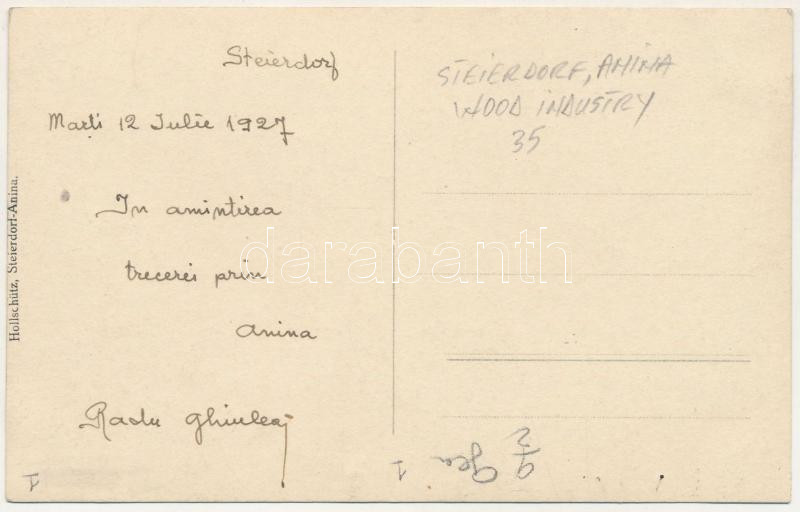 Steierdorf
Marți 12 Iulie 1927
In amintirea
trecerei prin
Anina
Radu
Hollschütz, Steierdorf-Anina.
STEIERDORF, ANINA
WOOD INDUSTRY
35
darabanth
1
I